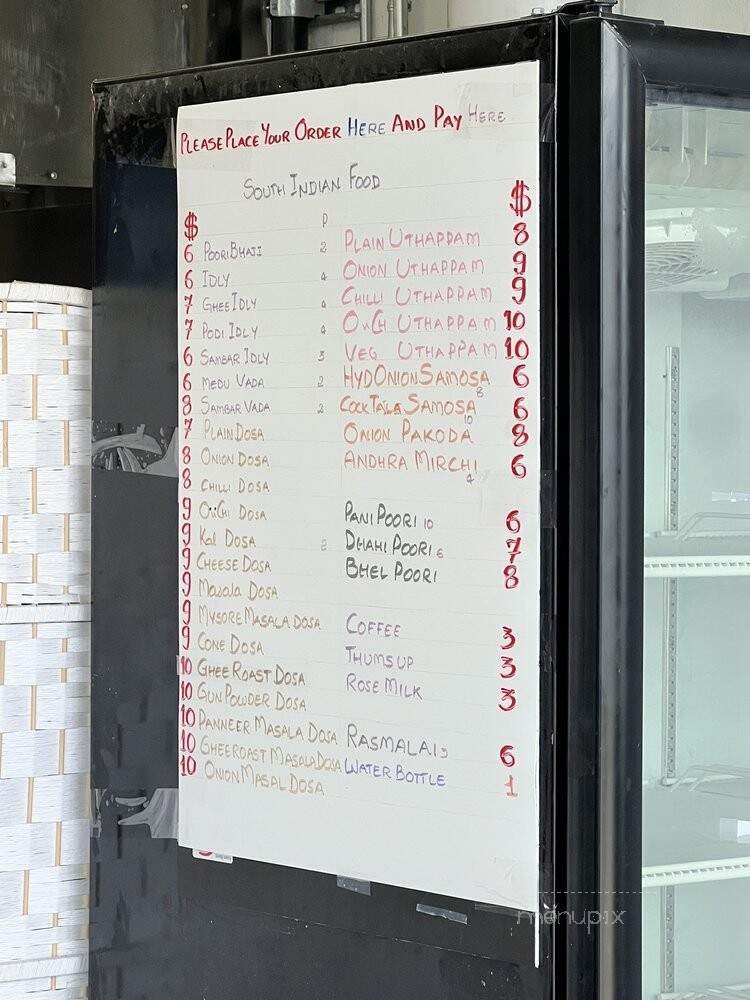 PLEASE PLACE YOUR ORDER HERE AND PAY HERE
SOUTH INDIAN FOOD
$ P
6 POORI BHAJI 2
6 IDLY 4
7 GHEE IDLY 4
7 PODI IDLY 4
6 SAMBAR IDLY 3
6 MEDU VADA 2
8 SAMBAR VADA 2
7 PLAIN DOSA
8 ONION DOSA
8 CHILLI DOSA
9 DOSA
9 Kal DOSA 2
9 CHEESE DOSA
9 Masala DOSA
9 MYSORE MASALA DOSA
9 CONE DOSA
10 GHEE ROAST DOSA
10 GUN POWDER DOSA
10 PANNEER MASALA DOSA
10 GHEEROAST MASALA DOSA
10 ONION MASAL DOSA
$
PLAIN UTHAPPAM 8
ONION UTHAPPAM 9
CHILLI UTHAPPAM 9
UTHAPPAM 10
VEG UTHAPPAM 10
HYD ONION SAMOSA 8 6
COCKTAIL SAMOSA 10 6
ONION PAKODA 8
ANDHRA MIRCHI 4 6
PANI POORI 10 6
DHAHI POORI 6 7
BHEL POORI 8
COFFEE 3
THUMS UP 3
ROSE MILK 3
RASMALAI 3 6
WATER BOTTLE 1
menupix